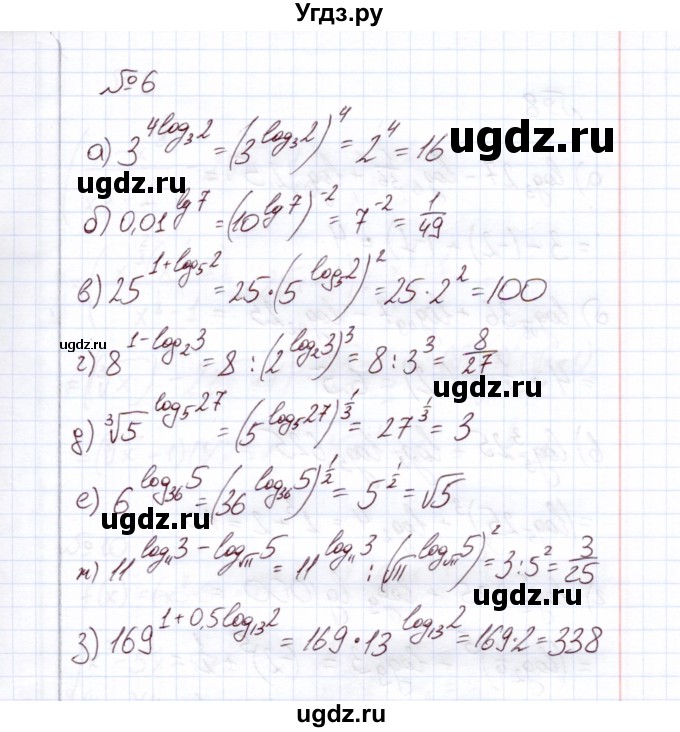 Угдз.ру
№6
а) 3^(4log₃2) = (3^(log₃2))^4 = 2^4 = 16
ugdz.ru
ugdz.ru
б) 0,01^(lg7) = (10^(lg7))^(-2) = 7^(-2) = 1/49
в) 25^(1+log₅2) = 25·(5^(log₅2))^2 = 25·2^2 = 100
ugdz.ru
г) 8^(1-log₂3) = 8 : (2^(log₂3))^3 = 8 : 3^3 = 8/27
ugdz.ru
д) ∛5^(log₅27) = (5^(log₅27))^(1/3) = 27^(1/3) = 3
е) 6^(log₃₆5) = (36^(log₃₆5))^(1/2) = 5^(1/2) = √5
ugdz.ru
ж) 11^(log₁₁3 - log_√11 5) = 11^(log₁₁3) : (√11^(log_√11 5))^2 = 3 : 5^2 = 3/25
ugdz.ru
з) 169^(1+0,5log₁₃2) = 169·13^(log₁₃2) = 169·2 = 338
ugdz.ru